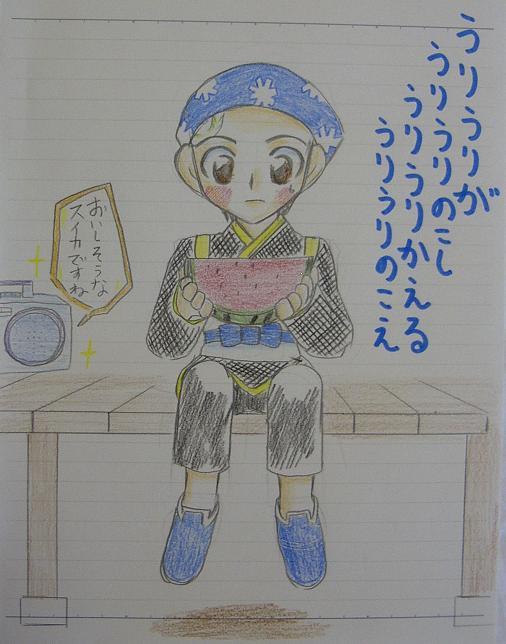 うりうりが
うりうりのこし
うりうりかえる
うりうりのこえ
おいしそうな
スイカですね